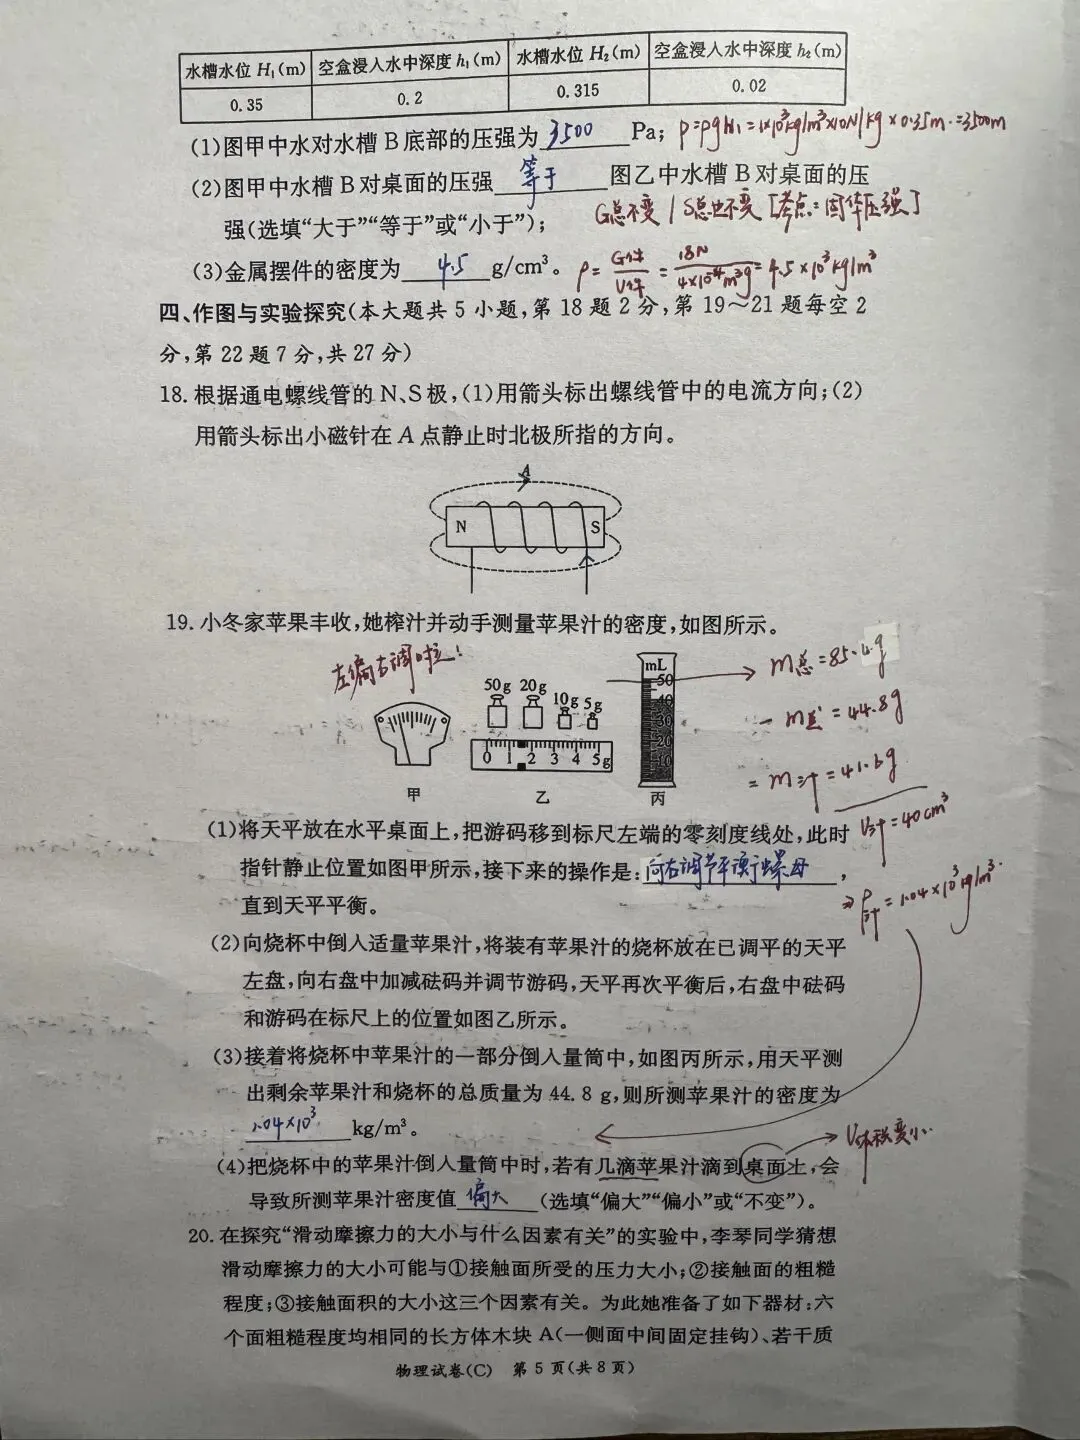 水槽水位 H₁(m) 空盒浸入水中深度 h₁(m) 水槽水位 H₂(m) 空盒浸入水中深度 h₂(m)
0.35 0.2 0.315 0.02
(1)图甲中水对水槽B底部的压强为3500Pa; P=ρgH₁=1×10³kg/m³×10N/kg×0.35m.=3500m
(2)图甲中水槽B对桌面的压强等于图乙中水槽B对桌面的压
强(选填“大于”“等于”或“小于”); G总不变 / S总也不变 [考点:固体压强]
(3)金属摆件的密度为4.5g/cm³。 ρ=G件/V件=18N/4×10⁻⁴m³g=4.5×10³kg/m³
四、作图与实验探究(本大题共5小题,第18题2分,第19~21题每空2
分,第22题7分,共27分)
18.根据通电螺线管的N、S极,(1)用箭头标出螺线管中的电流方向;(2)
用箭头标出小磁针在A点静止时北极所指的方向。
A
N S
19.小冬家苹果丰收,她榨汁并动手测量苹果汁的密度,如图所示。
左偏右调啦!
50g 20g 10g 5g
0 1 2 3 4 5g
mL
50
40
30
20
10
甲 乙 丙
m总=85.4g
-m剩=44.8g
=m汁=41.6g
V汁=40cm³
⇒ρ汁=1.04×10³kg/m³.
(1)将天平放在水平桌面上,把游码移到标尺左端的零刻度线处,此时
指针静止位置如图甲所示,接下来的操作是:向右调节平衡螺母,
直到天平平衡。
(2)向烧杯中倒入适量苹果汁,将装有苹果汁的烧杯放在已调平的天平
左盘,向右盘中加减砝码并调节游码,天平再次平衡后,右盘中砝码
和游码在标尺上的位置如图乙所示。
(3)接着将烧杯中苹果汁的一部分倒入量筒中,如图丙所示,用天平测
出剩余苹果汁和烧杯的总质量为44.8 g,则所测苹果汁的密度为
1.04×10³kg/m³。
V体积变小..
(4)把烧杯中的苹果汁倒入量筒中时,若有几滴苹果汁滴到桌面上,会
导致所测苹果汁密度值偏大(选填“偏大”“偏小”或“不变”)。
20.在探究“滑动摩擦力的大小与什么因素有关”的实验中,李琴同学猜想
滑动摩擦力的大小可能与①接触面所受的压力大小;②接触面的粗糙
程度;③接触面积的大小这三个因素有关。为此她准备了如下器材:六
个面粗糙程度均相同的长方体木块A(一侧面中间固定挂钩)、若干质
物理试卷(C) 第5页(共8页)